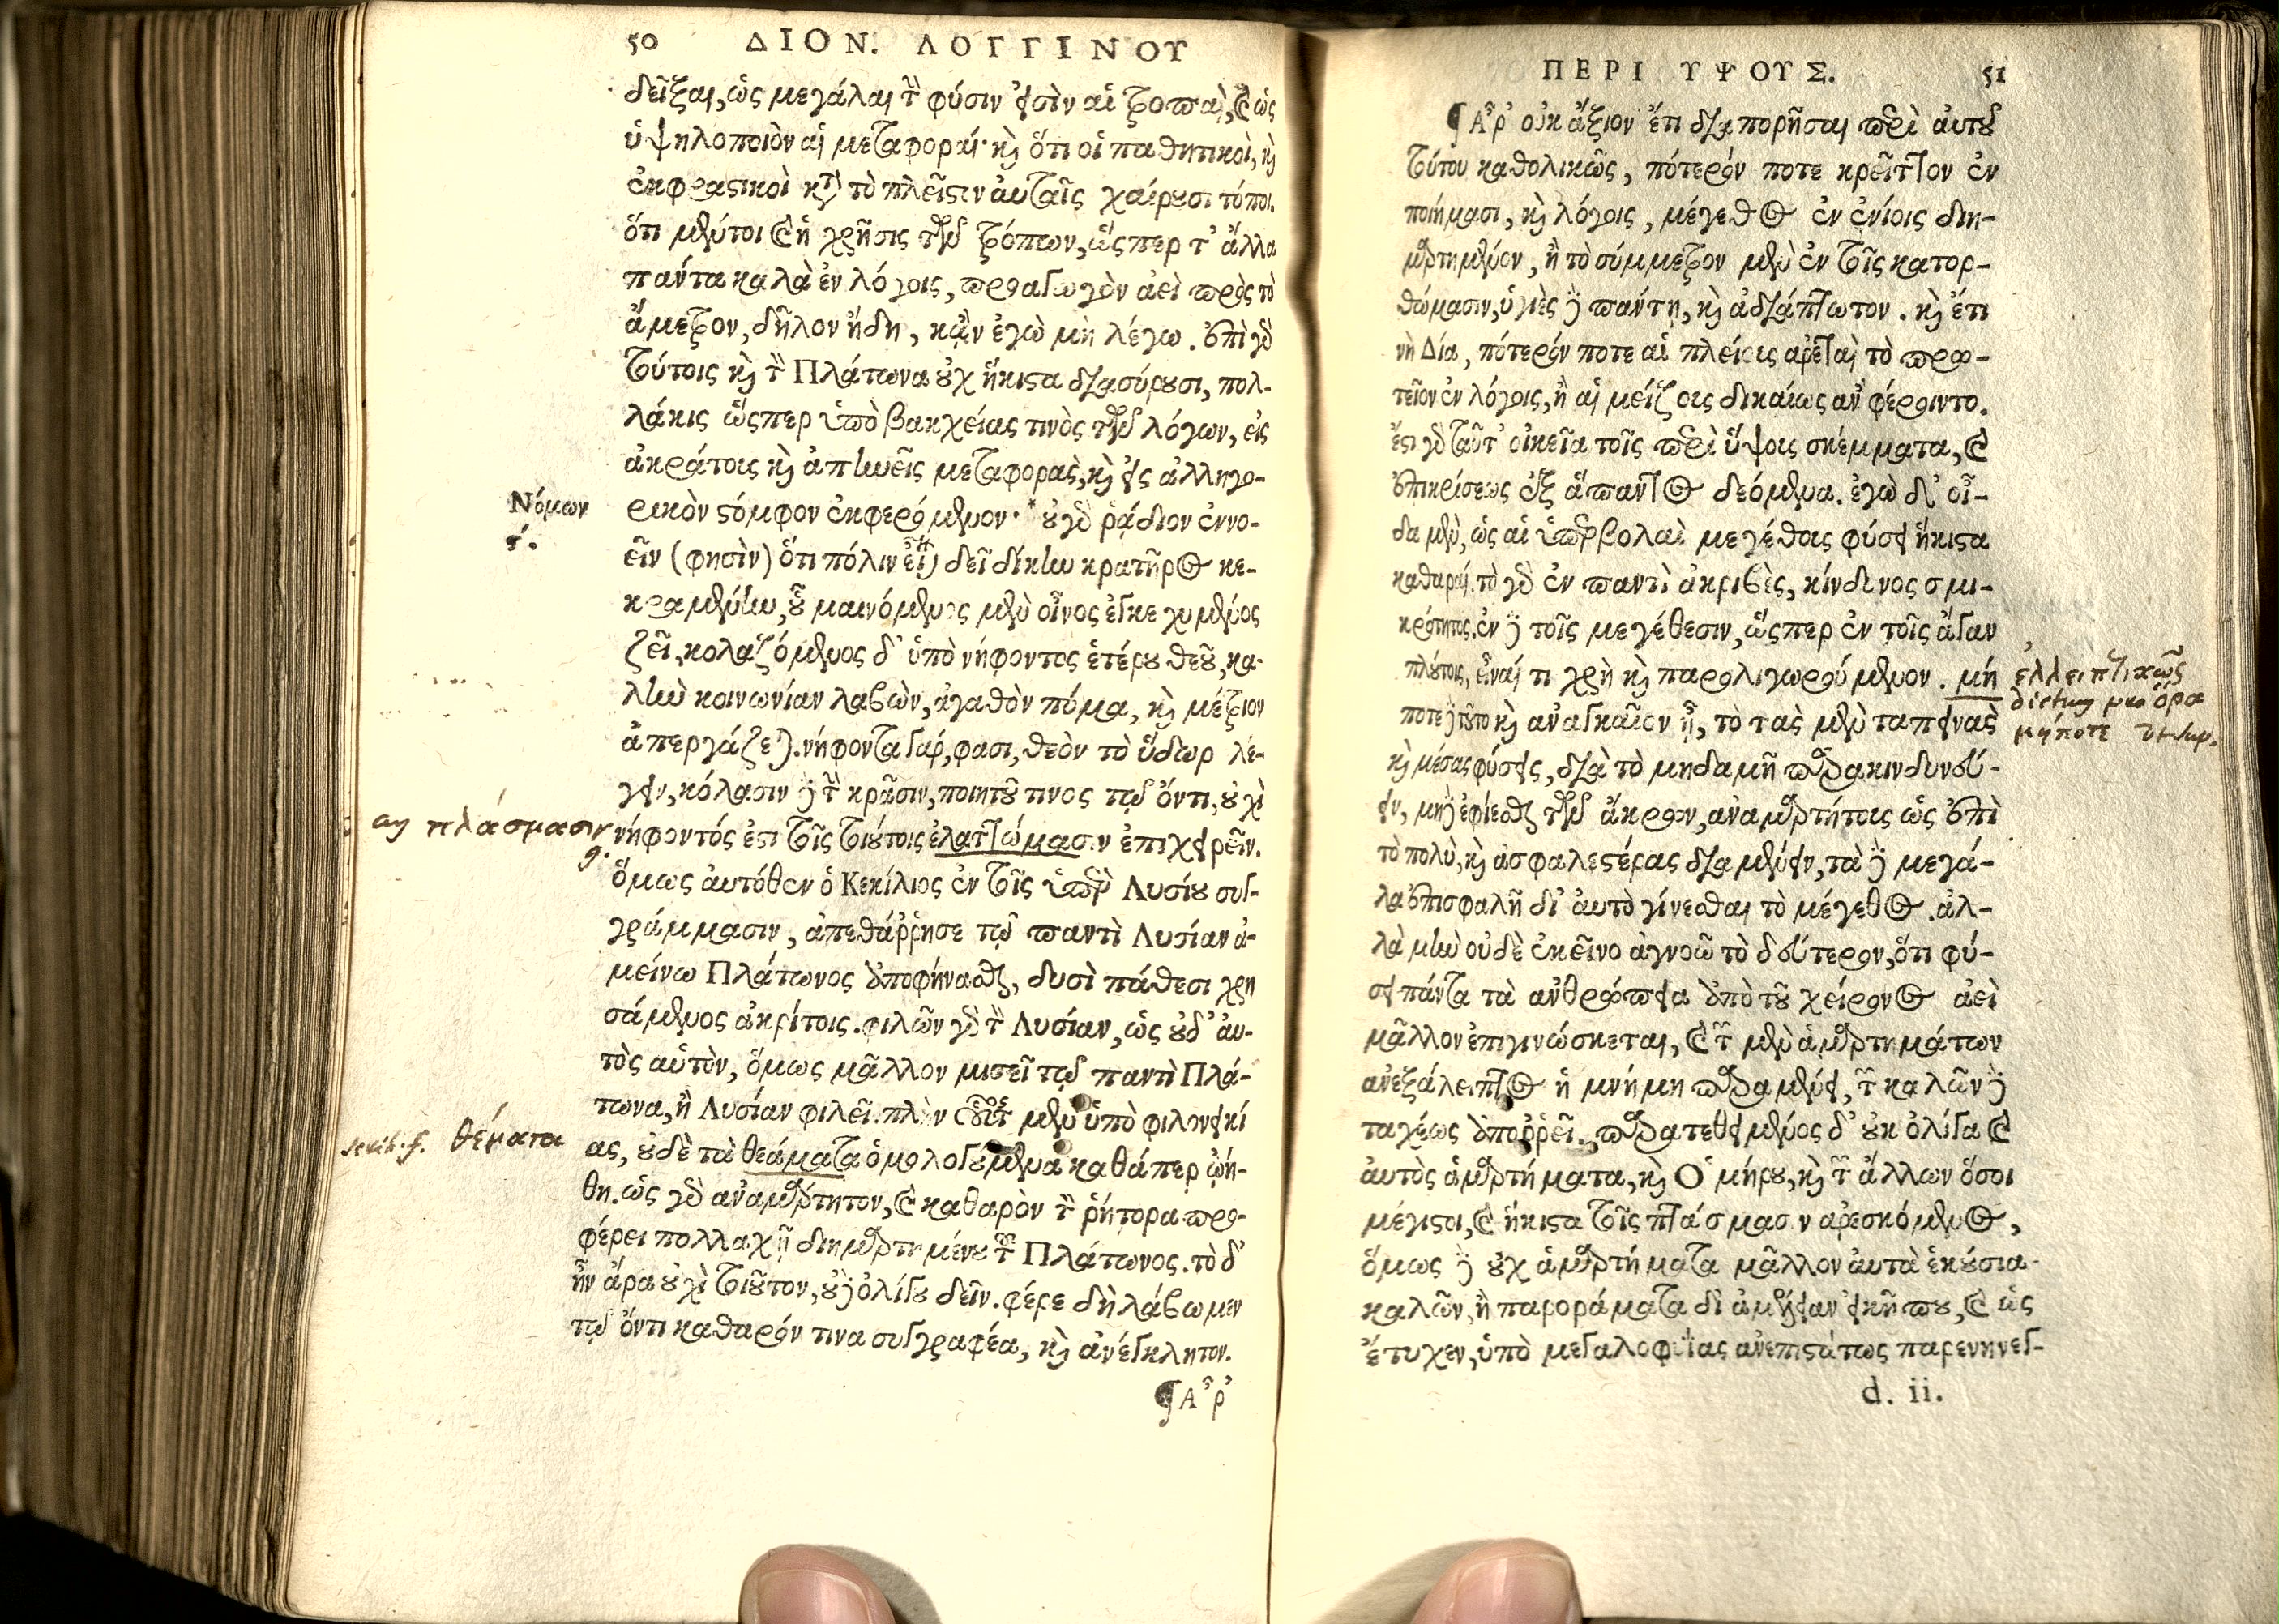 50 ΔΙΟΝ. ΛΟΓΓΙΝΟΥ
δεῖξαι, ὡς μεγάλαι τὴν φύσιν εἰσὶν αἱ τροπαὶ, καὶ ὡς
ὑψηλοποιὸν αἱ μεταφοραί· καὶ ὅτι οἱ παθητικοὶ, καὶ
ἐκφραστικοὶ κατὰ τὸ πλεῖστιν αὐταῖς χαίρουσι τόποι.
ὅτι μέντοι καὶ ἡ χρῆσις τῶν τρόπων, ὥσπερ τ' ἄλλα
πάντα καλὰ ἐν λόγοις, προαγωγὸν ἀεὶ πρὸς τὸ
ἄμετρον, δῆλον ἤδη, κἂν ἐγὼ μὴ λέγω. ἐπὶ γὰρ
τούτοις καὶ τὸν Πλάτωνα οὐχ ἥκιστα διασύρουσι, πολ-
λάκις ὥσπερ ὑπὸ βακχείας τινὸς τῶν λόγων, εἰς
ἀκράτους καὶ ἀπηνεῖς μεταφορὰς, καὶ εἰς ἀλληγο-
Νόμων
ϛ'.
ρικὸν στόμφον ἐκφερόμενον· * οὐ γὰρ ῥᾴδιον ἐννο-
εῖν (φησὶν) ὅτι πόλιν εἶναι δεῖ δίκην κρατῆρος κε-
κραμένην, οὗ μαινόμενος μὲν οἶνος ἐγκεχυμένος
ζεῖ, κολαζόμενος δ' ὑπὸ νήφοντος ἑτέρου θεοῦ, κα-
λὴν κοινωνίαν λαβὼν, ἀγαθὸν πόμα, καὶ μέτριον
ἀπεργάζεται. νήφοντα γάρ, φασι, θεὸν τὸ ὕδωρ λέ-
γειν, κόλασιν δὲ τὴν κρᾶσιν, ποιητοῦ τινος τῷ ὄντι, οὐχὶ
an πλάσμασιν
νήφοντός ἐστι τοῖς τοιούτοις ἐλαττώμασιν ἐπιχειρεῖν.
ὅμως αὐτόθεν ὁ Κεκίλιος ἐν τοῖς ὑπὲρ Λυσίου συγ-
γράμμασιν, ἀπεθάῤῥησε τῷ παντὶ Λυσίαν ἀ-
μείνω Πλάτωνος ἀποφήνασθαι, δυσὶ πάθεσι χρη
σάμενος ἀκρίτοις. φιλῶν γὰρ τὸν Λυσίαν, ὡς οὐδ' αὐ-
τὸς αὑτὸν, ὅμως μᾶλλον μισεῖ τῷ παντὶ Πλά-
τωνα, ἢ Λυσίαν φιλεῖ. πλὴν οὗτος μὲν ὑπὸ φιλονεικί
θέματα
ας, οὐδὲ τὰ θεάματα ὁμολογούμενα καθάπερ ᾠή-
θη. ὡς γὰρ ἀναμάρτητον, καὶ καθαρὸν τὸν ῥήτορα προ-
φέρει πολλαχῇ διημαρτημένου τοῦ Πλάτωνος. τὸ δ'
ἦν ἄρα οὐχὶ τοιοῦτον, οὐδὲ ὀλίγου δεῖν. φέρε δὴ λάβωμεν
τῷ ὄντι καθαρόν τινα συγγραφέα, καὶ ἀνέγκλητον.
¶ Ἆρ'
ΠΕΡΙ ΥΨΟΥΣ. 51
¶ Ἆρ' οὐκ ἄξιον ἔτι διαπορῆσαι περὶ αὐτοῦ
τούτου καθολικῶς, πότερόν ποτε κρεῖττον ἐν
ποιήμασι, καὶ λόγοις, μέγεθος ἐν ἐνίοις διη-
μαρτημένον, ἢ τὸ σύμμετρον μὲν ἐν τοῖς κατορ-
θώμασιν, ὑγιὲς δὲ πάντη, καὶ ἀδιάπτωτον. καὶ ἔτι
νὴ Δία, πότερόν ποτε αἱ πλείους ἀρεταὶ τὸ πρω-
τεῖον ἐν λόγοις, ἢ αἱ μείζους δικαίως ἂν φέροιντο.
ἔστι γὰρ ταῦτ' οἰκεῖα τοῖς περὶ ὕψους σκέμματα, καὶ
ἐπικρίσεως ἐξ ἅπαντος δεόμενα. ἐγὼ δ' οἶ-
δα μὲν, ὡς αἱ ὑπερβολαὶ μεγέθους φύσει ἥκιστα
καθαραί. τὸ γὰρ ἐν παντὶ ἀκριβὲς, κίνδυνος σμι-
κρότητος. ἐν δὲ τοῖς μεγέθεσιν, ὥσπερ ἐν τοῖς ἄγαν
πλούτοις, εἶναί τι χρὴ καὶ παρολιγωρούμενον. μή
ἐλλειπτικῶς
dictum pro ὅρα
μήποτε
ποτε δὲ τοῦτο καὶ ἀναγκαῖον ᾖ, τὸ τὰς μὲν ταπεινὰς
καὶ μέσας φύσεις, διὰ τὸ μηδαμῆ παρακινδυνεύ-
ειν, μηδὲ ἐφίεσθαι τῶν ἄκρων, ἀναμαρτήτους ὡς ἐπὶ
τὸ πολὺ, καὶ ἀσφαλεστέρας διαμένειν, τὰ δὲ μεγά-
λα ἐπισφαλῆ δι' αὐτὸ γίνεσθαι τὸ μέγεθος. ἀλ-
λὰ μὴν οὐδὲ ἐκεῖνο ἀγνοῶ τὸ δεύτερον, ὅτι φύ-
σει πάντα τὰ ἀνθρώπεια ἀπὸ τοῦ χείρονος ἀεὶ
μᾶλλον ἐπιγινώσκεται, καὶ τῶν μὲν ἁμαρτημάτων
ἀνεξάλειπτος ἡ μνήμη παραμένει, τῶν καλῶν δὲ
ταχέως ἀποῤῥεῖ. παρατεθειμένος δ' οὐκ ὀλίγα καὶ
αὐτὸς ἁμαρτήματα, καὶ Ὁμήρου, καὶ τῶν ἄλλων ὅσοι
μέγιστοι, καὶ ἥκιστα τοῖς πταίσμασιν ἀρεσκόμενος,
ὅμως δὲ οὐχ ἁμαρτήματα μᾶλλον αὐτὰ ἑκούσια
καλῶν, ἢ παροράματα δι' ἀμέλειαν εἰκῆ που, καὶ ὡς
ἔτυχεν, ὑπὸ μεγαλοφυΐας ἀνεπιστάτως παρενηνεγ-
d. ii.